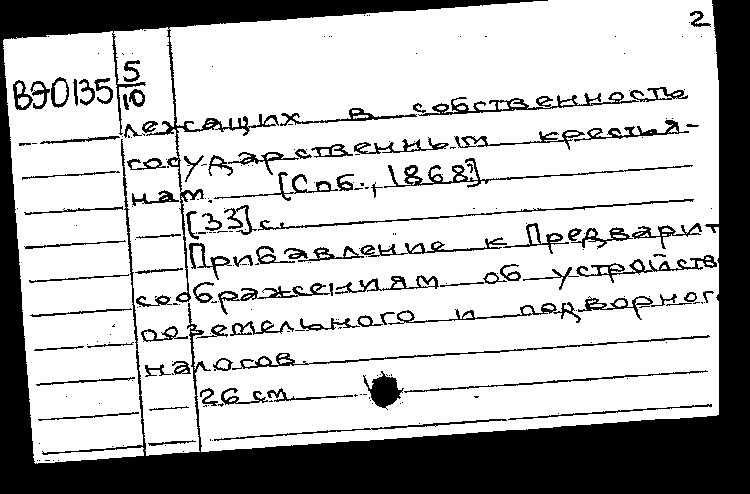 2
ВЭ0135 5/10
лежащих в собственность
государственным крестья-
нам. [Спб., 1868?].
[33] с.
Прибавление к Предварит
соображениям об устройств
поземельного и подворног
налогов.
26 см